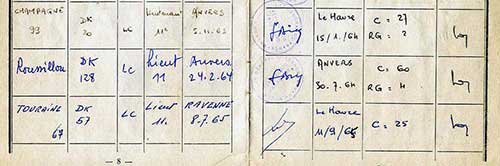 CHAMPAGNE DK Lieutenant ANVERS Le Havre C = 27
93 20 LC 11e 5.11.63 15/1/64 RG = 2
Roussillon DK LC Lieut Anvers ANVERS C = 60
128 11 24.2.64 30.7.64 RG = 4
TOURAINE DK LC Lieut RAVENNE Le Havre C = 25
67 57 11. 8.7.65 11/9/65
— 8 —